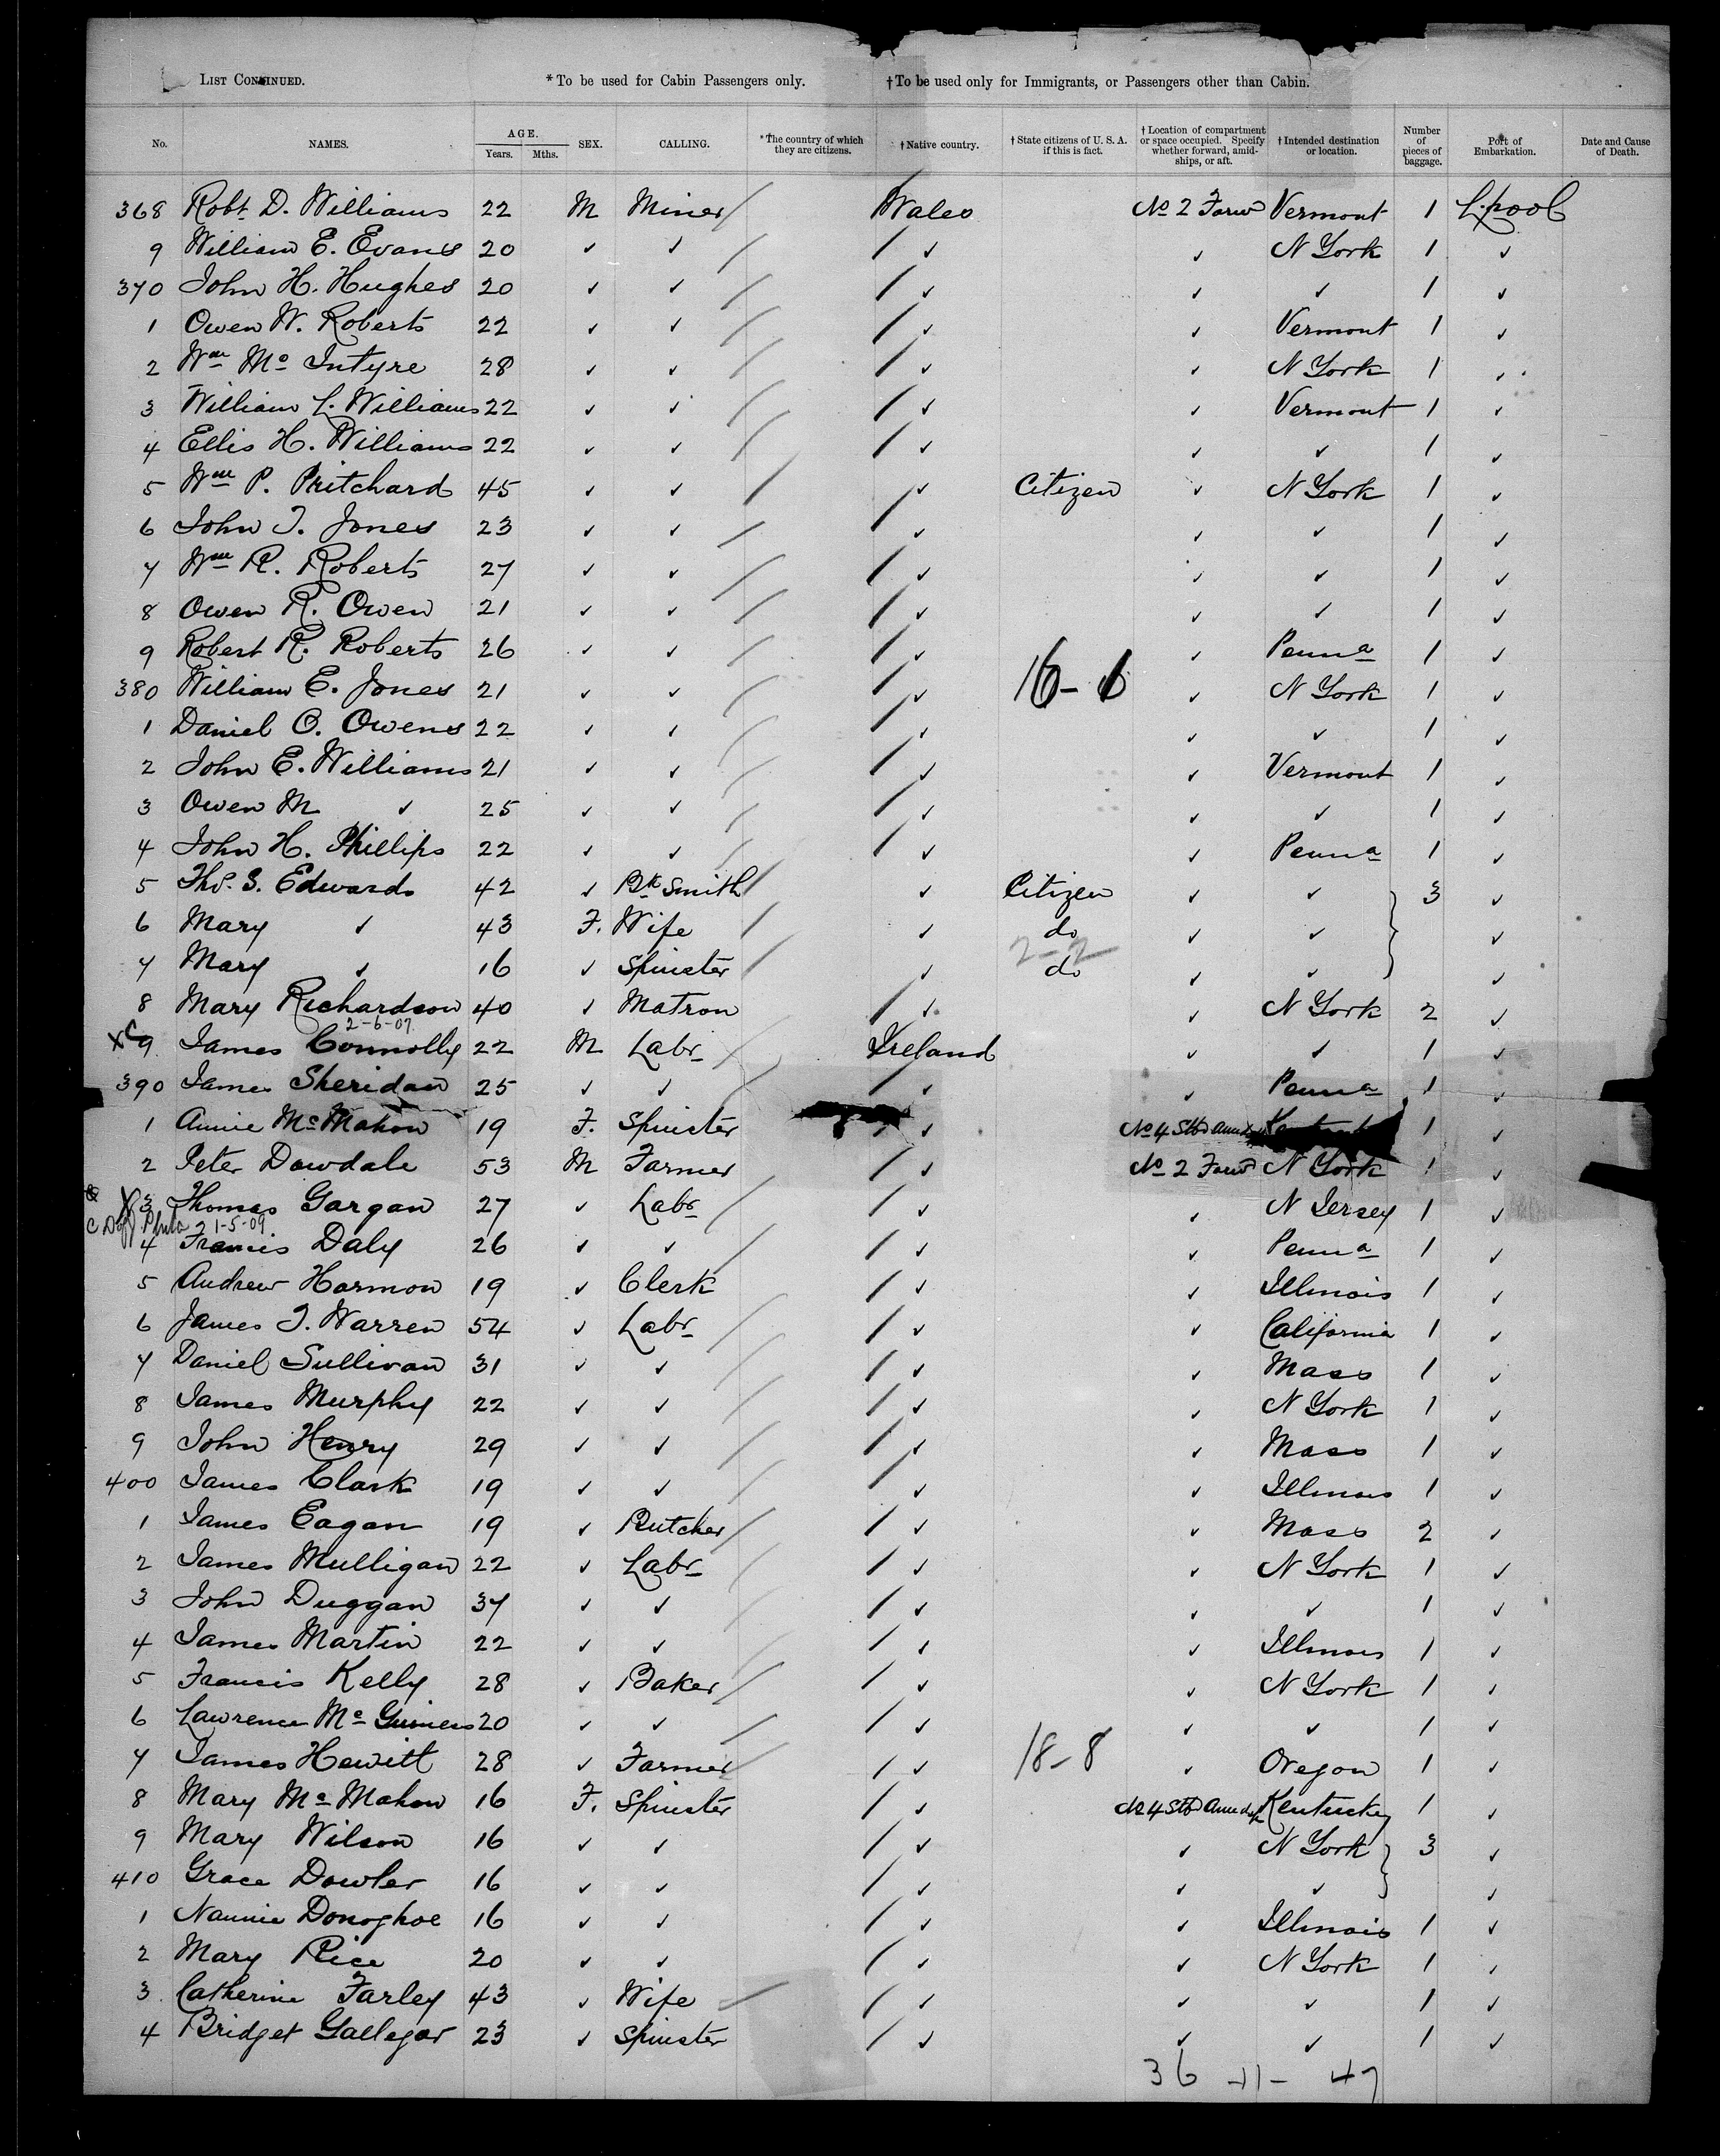 LIST CONTINUED. * To be used for Cabin Passengers only. † To be used only for Immigrants, or Passengers other than Cabin.
No. NAMES. AGE. Years. Mths. SEX. CALLING. * The country of which they are citizens. † Native country. † State citizens of U. S. A. if this is fact. † Location of compartment or space occupied. Specify whether forward, amidships, or aft. † Intended destination or location. Number of pieces of baggage. Port of Embarkation. Date and Cause of Death.
368 Robt. D. Williams 22 M Miner Wales No 2 Forwd Vermont 1 L.pool
9 William E. Evans 20 ✓ ✓ ✓ ✓ N York 1 ✓
370 John H. Hughes 20 ✓ ✓ ✓ ✓ ✓ 1 ✓
1 Owen W. Roberts 22 ✓ ✓ ✓ ✓ Vermont 1 ✓
2 Wm Mc Intyre 28 ✓ ✓ ✓ ✓ N York 1 ✓
3 William L. Williams 22 ✓ ✓ ✓ ✓ Vermont 1 ✓
4 Ellis H. Williams 22 ✓ ✓ ✓ ✓ ✓ 1 ✓
5 Wm P. Pritchard 45 ✓ ✓ ✓ Citizen ✓ N York 1 ✓
6 John T. Jones 23 ✓ ✓ ✓ ✓ ✓ 1 ✓
7 Wm R. Roberts 27 ✓ ✓ ✓ ✓ ✓ 1 ✓
8 Owen R. Owen 21 ✓ ✓ ✓ ✓ ✓ 1 ✓
9 Robert R. Roberts 26 ✓ ✓ ✓ ✓ Penna 1 ✓
380 William E. Jones 21 ✓ ✓ ✓ 16- ✓ N York 1 ✓
1 Daniel O. Owens 22 ✓ ✓ ✓ ✓ ✓ 1 ✓
2 John E. Williams 21 ✓ ✓ ✓ ✓ Vermont 1 ✓
3 Owen M ✓ 25 ✓ ✓ ✓ ✓ ✓ 1 ✓
4 John H. Phillips 22 ✓ ✓ ✓ ✓ Penna 1 ✓
5 Thos. S. Edwards 42 ✓ Bk Smith ✓ Citizen ✓ ✓ 3 ✓
6 Mary ✓ 43 F. Wife ✓ do ✓ ✓ ✓
2-2
7 Mary ✓ 16 ✓ Spinster ✓ do ✓ ✓ ✓
8 Mary Richardson 40 ✓ Matron ✓ ✓ N York 2 ✓
2-6-07
X C 9 James Connolly 22 M Labr Ireland ✓ ✓ 1 ✓
390 James Sheridan 25 ✓ ✓ ✓ ✓ Penna 1 ✓
1 Annie Mc Mahon 19 F. Spinster ✓ No 4 Stbd 1 ✓
2 Peter Dowdale 53 M Farmer ✓ No 2 Forwd N York 1 ✓
X 3 Thomas Gargan 27 ✓ Labr ✓ ✓ N Jersey 1 ✓
Phila 1-5-09
4 Francis Daly 26 ✓ ✓ ✓ ✓ Penna 1 ✓
5 Andrew Harmon 19 ✓ Clerk ✓ ✓ Illinois 1 ✓
6 James T. Warren 54 ✓ Labr ✓ ✓ California 1 ✓
7 Daniel Sullivan 31 ✓ ✓ ✓ ✓ Mass 1 ✓
8 James Murphy 22 ✓ ✓ ✓ ✓ N York 1 ✓
9 John Henry 29 ✓ ✓ ✓ ✓ Mass 1 ✓
400 James Clark 19 ✓ ✓ ✓ ✓ Illinois 1 ✓
1 James Eagan 19 ✓ Butcher ✓ ✓ Mass 2 ✓
2 James Mulligan 22 ✓ Labr ✓ ✓ N York 1 ✓
3 John Duggan 37 ✓ ✓ ✓ ✓ ✓ 1 ✓
4 James Martin 22 ✓ ✓ ✓ ✓ Illinois 1 ✓
5 Francis Kelly 28 ✓ Baker ✓ ✓ N York 1 ✓
6 Lawrence Mc Guiness 20 ✓ ✓ ✓ ✓ ✓ 1 ✓
7 James Hewitt 28 ✓ Farmer ✓ 18-8 ✓ Oregon 1 ✓
8 Mary Mc Mahon 16 F. Spinster ✓ No 4 Stbd Kentucky 1 ✓
9 Mary Wilson 16 ✓ ✓ ✓ ✓ N York 3 ✓
410 Grace Dowler 16 ✓ ✓ ✓ ✓ ✓ ✓
1 Nannie Donoghoe 16 ✓ ✓ ✓ ✓ Illinois 1 ✓
2 Mary Rice 20 ✓ ✓ ✓ ✓ N York 1 ✓
3 Catherine Farley 43 ✓ Wife ✓ ✓ ✓ 1 ✓
4 Bridget Gallegar 23 ✓ Spinster ✓ ✓ ✓ 1 ✓
36 -11- 47